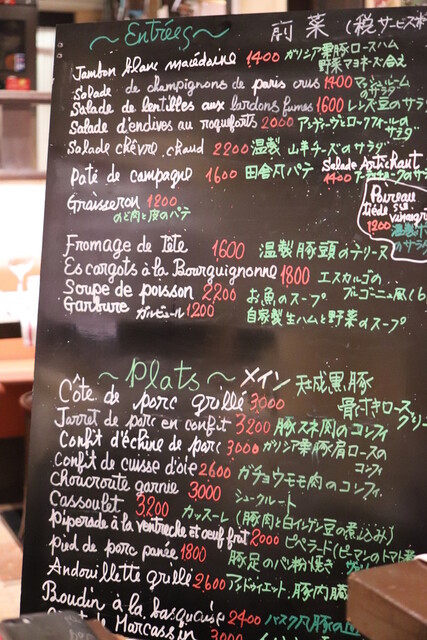 ~Entrées~ 前菜 (税サービス
Jambon blanc macédoine 1400 ガリシア栗豚ロースハム
野菜マヨネーズ合え
Salade de champignons de paris crus 1400 マッシュルーム
サラダ
Salade de lentilles aux lardons fumes 1600 レンズ豆のサラダ
Salade d'endives au roqueforts 2000 アンディーヴとロックフォールの
サラダ
Salade chèvre chaud 2200 温製 山羊チーズのサラダ
Pâté de campagne 1600 田舎風パテ
Salade Artichaut
1400
Graisseron 1200
のど肉と皮のパテ
Poireau
tiède sce
vinaigre
1200 温製
のサラダ
Fromage de tête 1600 温製 豚頭のテリーヌ
Escargots à la Bourguignonne 1800 エスカルゴの
ブルゴーニュ風 (6
Soupe de poisson 2200 お魚のスープ
Garbure ガルビュール 1200 自家製生ハムと野菜のスープ
~Plats~ メイン
Côte de porc grillé 3000 天成黒豚
骨付きロース
グリ
Jarret de porc en confit 3200 豚スネ肉のコンフィ
Confit d'échine de porc 3000 ガリシア栗豚肩ロースの
コンフィ
Confit de cuisse d'oie 2600 ガチョウモモ肉のコンフィ
Choucroute garnie 3000 シュークルート
Cassoulet 3,200 カッスーレ (豚肉と白インゲン豆の煮込み)
Piperade à la ventreche et oeuf frit 2000 ピペラード (ピーマンのトマト煮
pied de porc panée 1800 豚足のパン粉焼き
Andouillette grillé 2,600 アンドゥイエット 豚内臓
Boudin à la basquaise 2400 バスク風豚の血
de Marcassin 3000